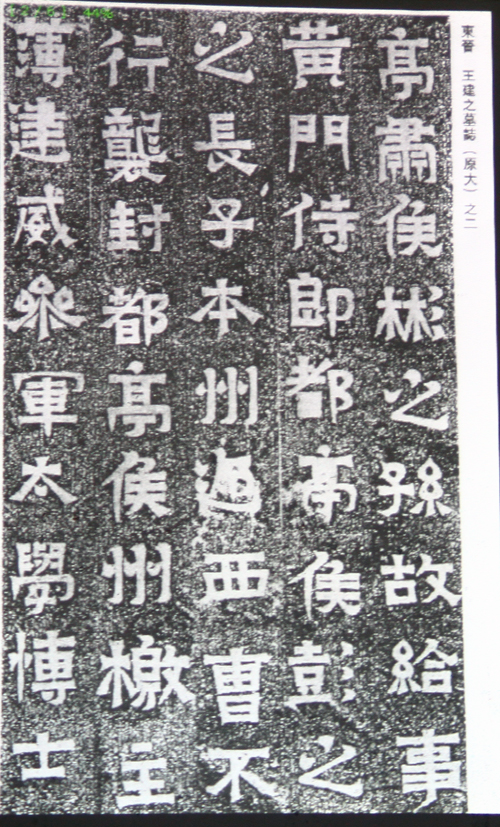 東晉 王建之墓誌（原大）之二
亭肅侯彬之孫故給事
黃門侍郎都亭侯彭之
之長子本州西曹不
行襲封都亭侯州檄主
薄建威參軍太學博士